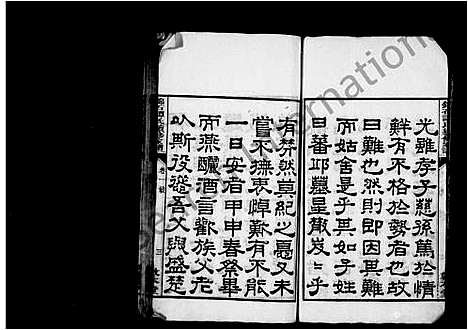 光雖孝子慈孫篤於情
鮮有不格於勢者也故
曰難也然則即因其難
而姑舍是乎其如子姓
日蕃邱墓星散岌岌乎
有茫然莫紀之憂又未
嘗不撫衷悼難有不能
一日安者甲申春祭畢
而燕釃酒言歡族父老
以斯役謀吾父與盛楚
卷一
三